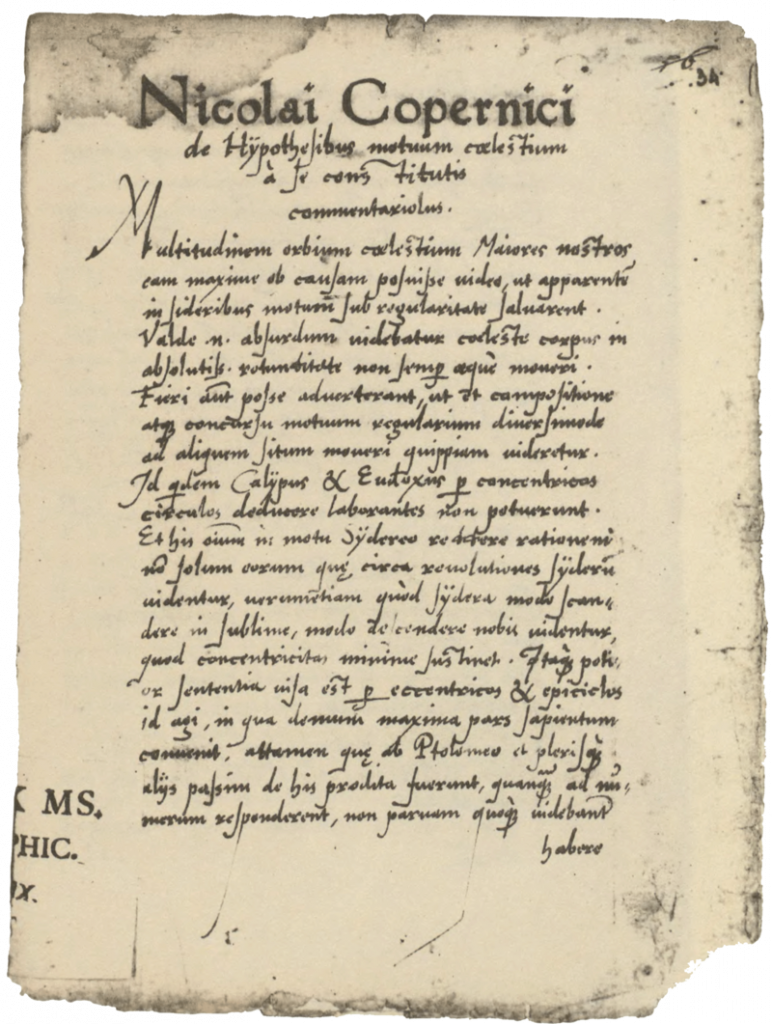 34
Nicolai Copernici
de Hÿpothesibus motuum cœlestium
à se constitutis
commentariolus.
Multitudinem orbium cœlestium Maiores nostros
eam maxime ob causam posuisse uideo, ut apparentẽ
in sideribus motum̃ sub regularitate saluarent.
Valde .n. absurdum uidebatur cœleste corpus in
absolutiss. rotunditate non semp̱ æque moueri.
Fieri aũt posse aduerterant, ut et compositione
atqꝫ concursu motuum regularium diuersimode
ad aliquem situm moueri quippiam uideretur.
Id qͥdem Calÿpus & Eudoxus ꝑ concentricos
circulos deducere laborantes non potuerunt.
Et his oium̃ in motu Sydereo reddere rationem
nõ solum eorum quę circa reuolutiones sÿderũ
uidentur, uerumetiam quod sÿdera modo scan-
dere in sublime, modo descendere nobis uidentur,
quod concentricitas minime sustinet. Itaqꝫ poti-
or sententia uisa est ꝑ eccentricos & epiciclos
id agi, in qua demum maxima pars sapientum
conuenit, attamen quę ab Ptolomeo et plerisqꝫ
alijs passim de his prodita fuerunt, quanqꝫ ad nu-
merum responderent, non paruam quoqꝫ uidebant̃
habere
MS.
PHIC.
IX.